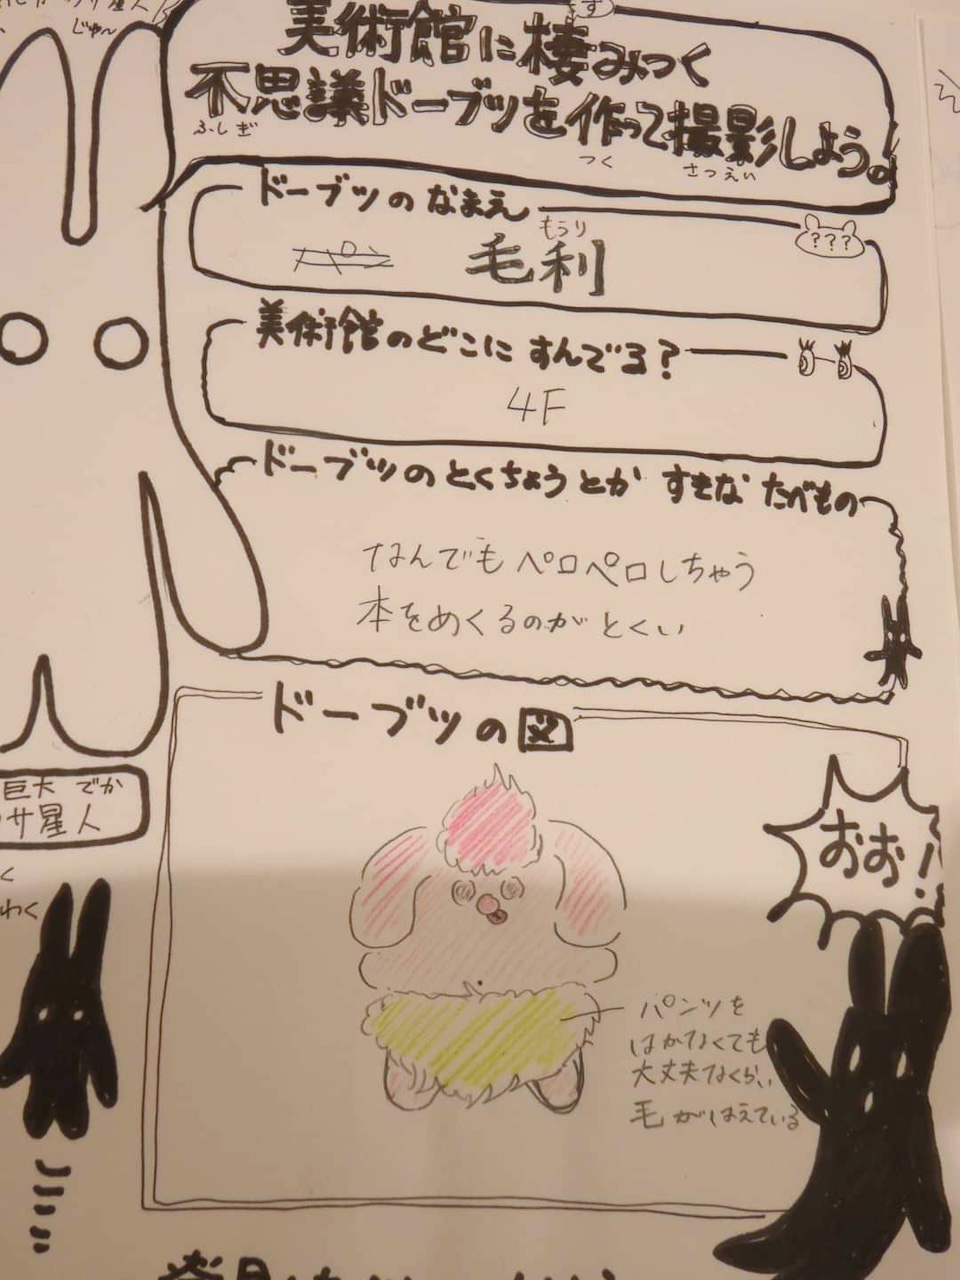 じゅ〜
美術館に棲みつく
す
不思議ドーブツを作って撮影しよう!
ふしぎ
つく
さつえい
ドーブツのなまえ
もうり
毛利
???
美術館のどこにすんでる?
4F
ドーブツのとくちょうとか すきな たべもの
なんでもペロペロしちゃう
本をめくるのがとくい
ドーブツの図
おお!
巨大 でか
サ星人
わく
パンツを
はかなくても
大丈夫なくらい
毛がはえている